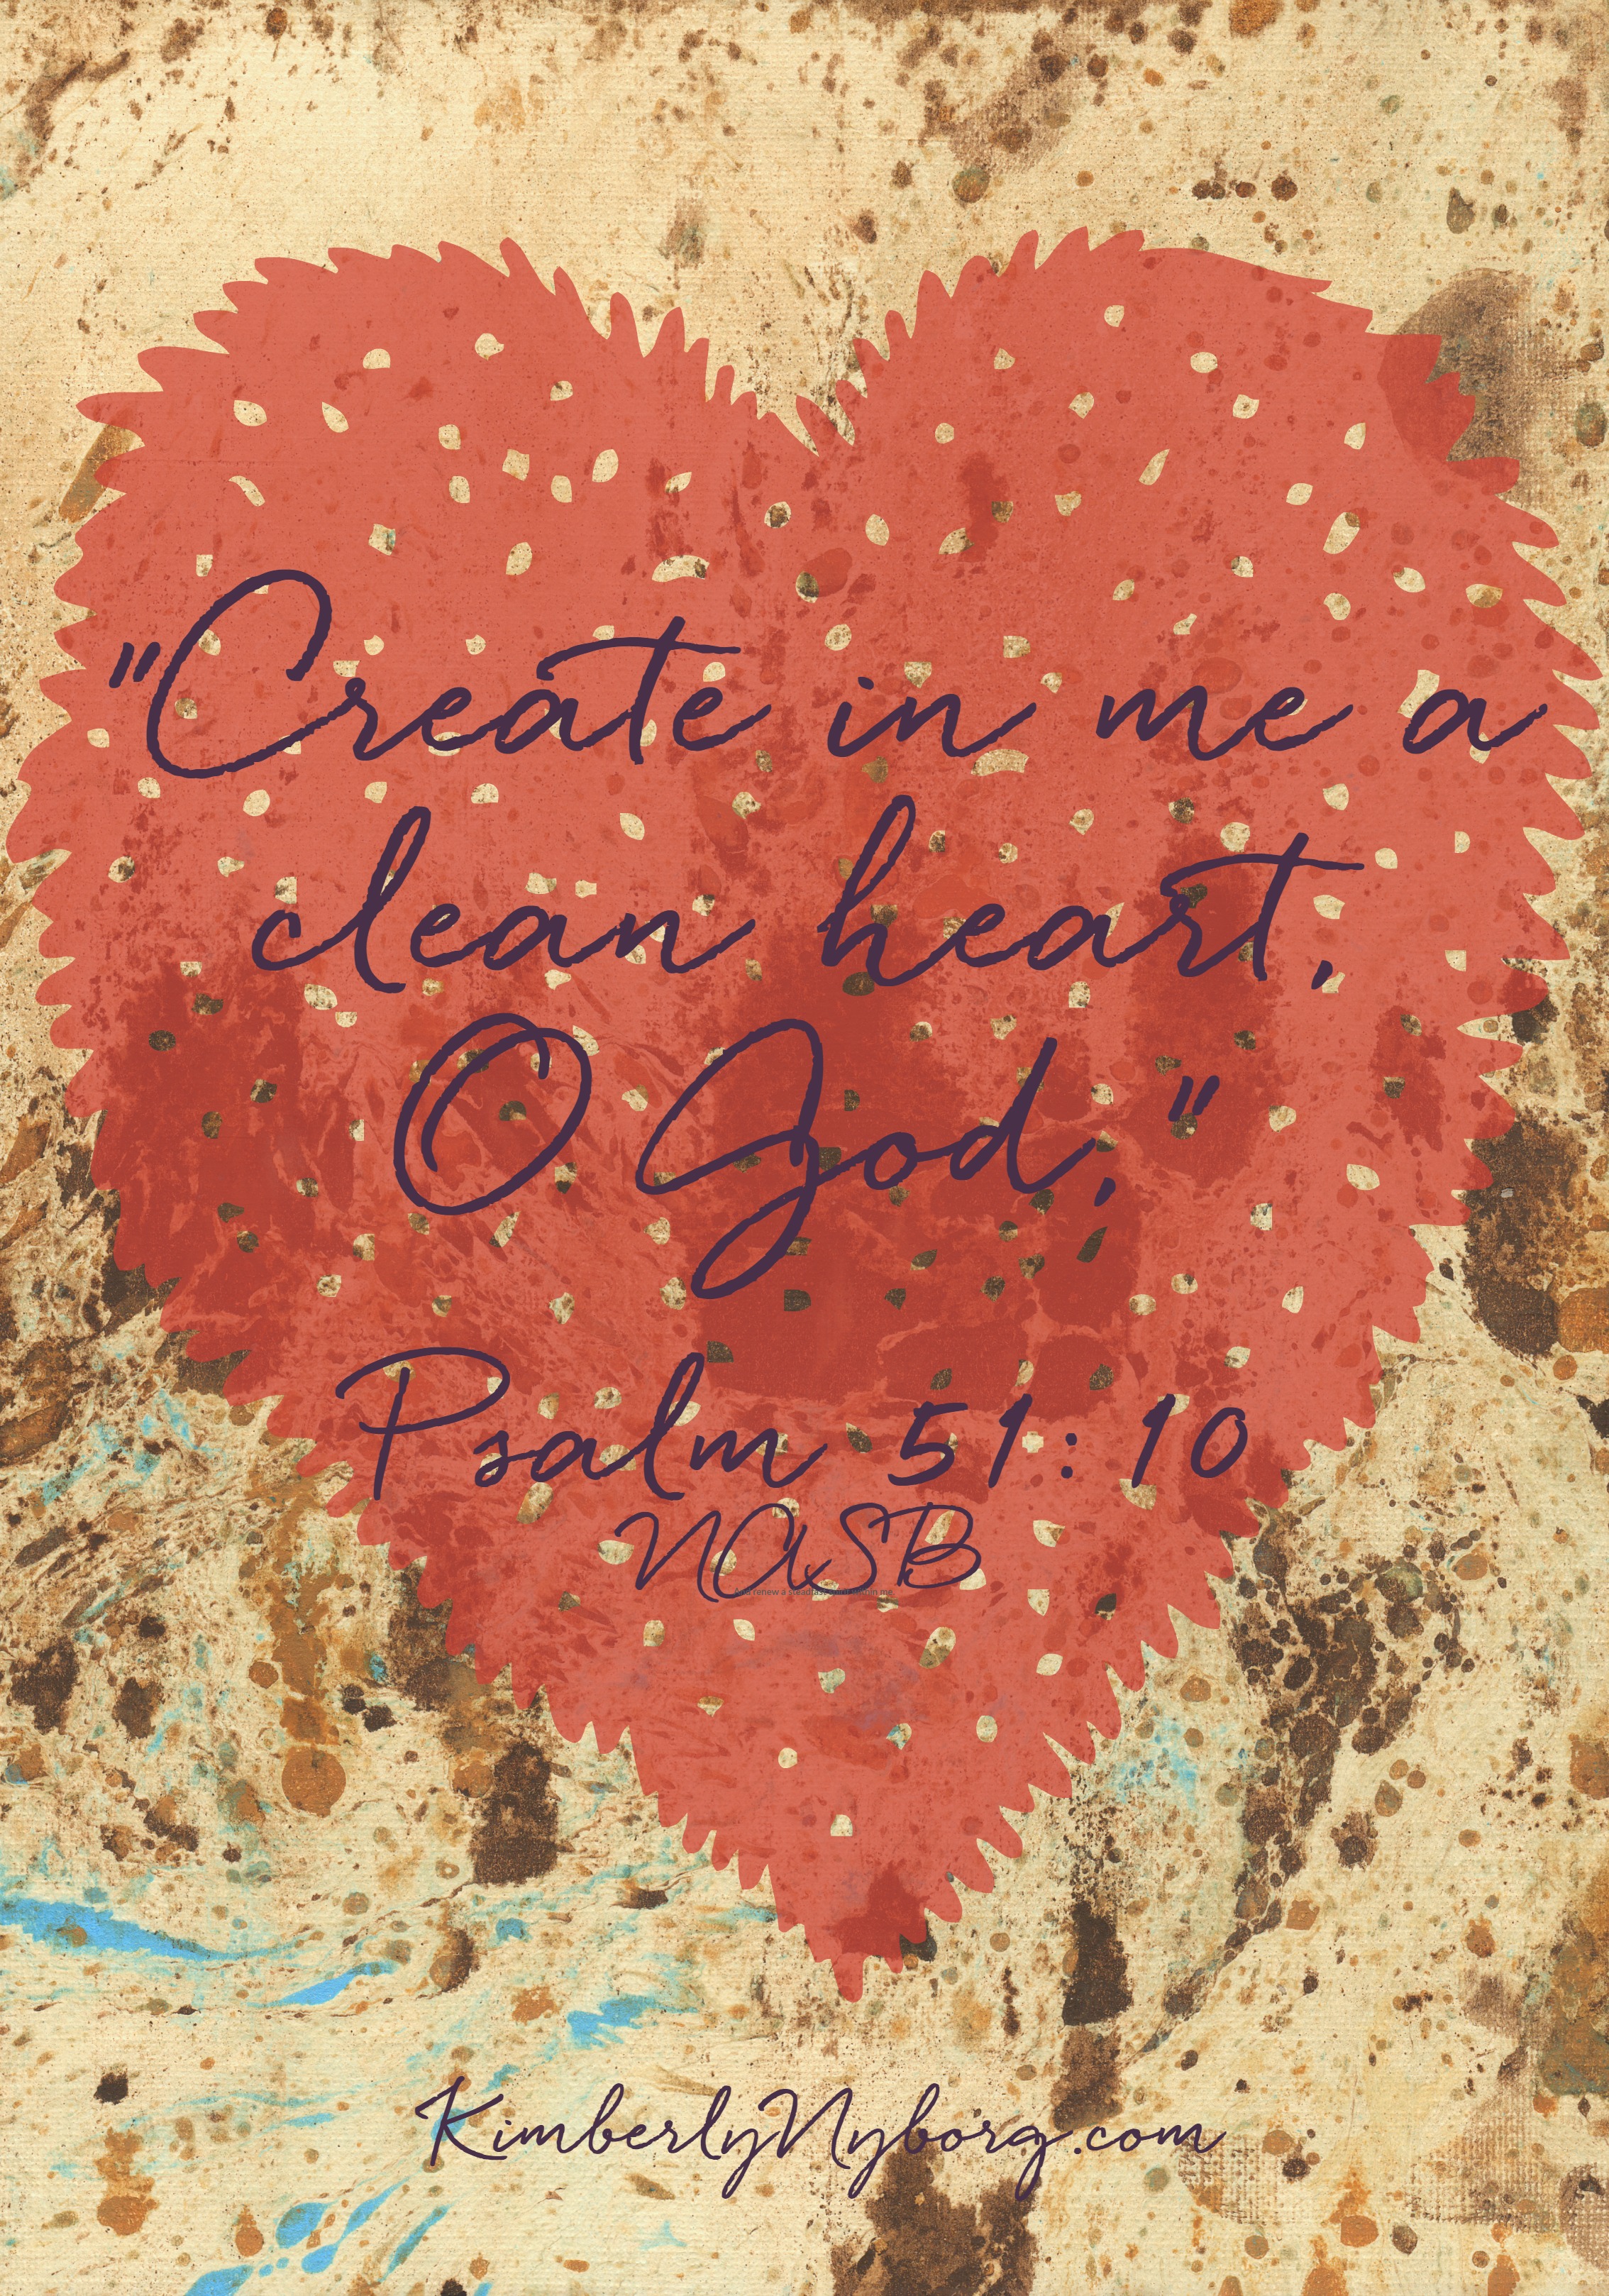 "Create in me a
clean heart,
O God,"
Psalm 51:10
NASB
And renew a steadfast spirit within me.
KimberlyNyborg.com